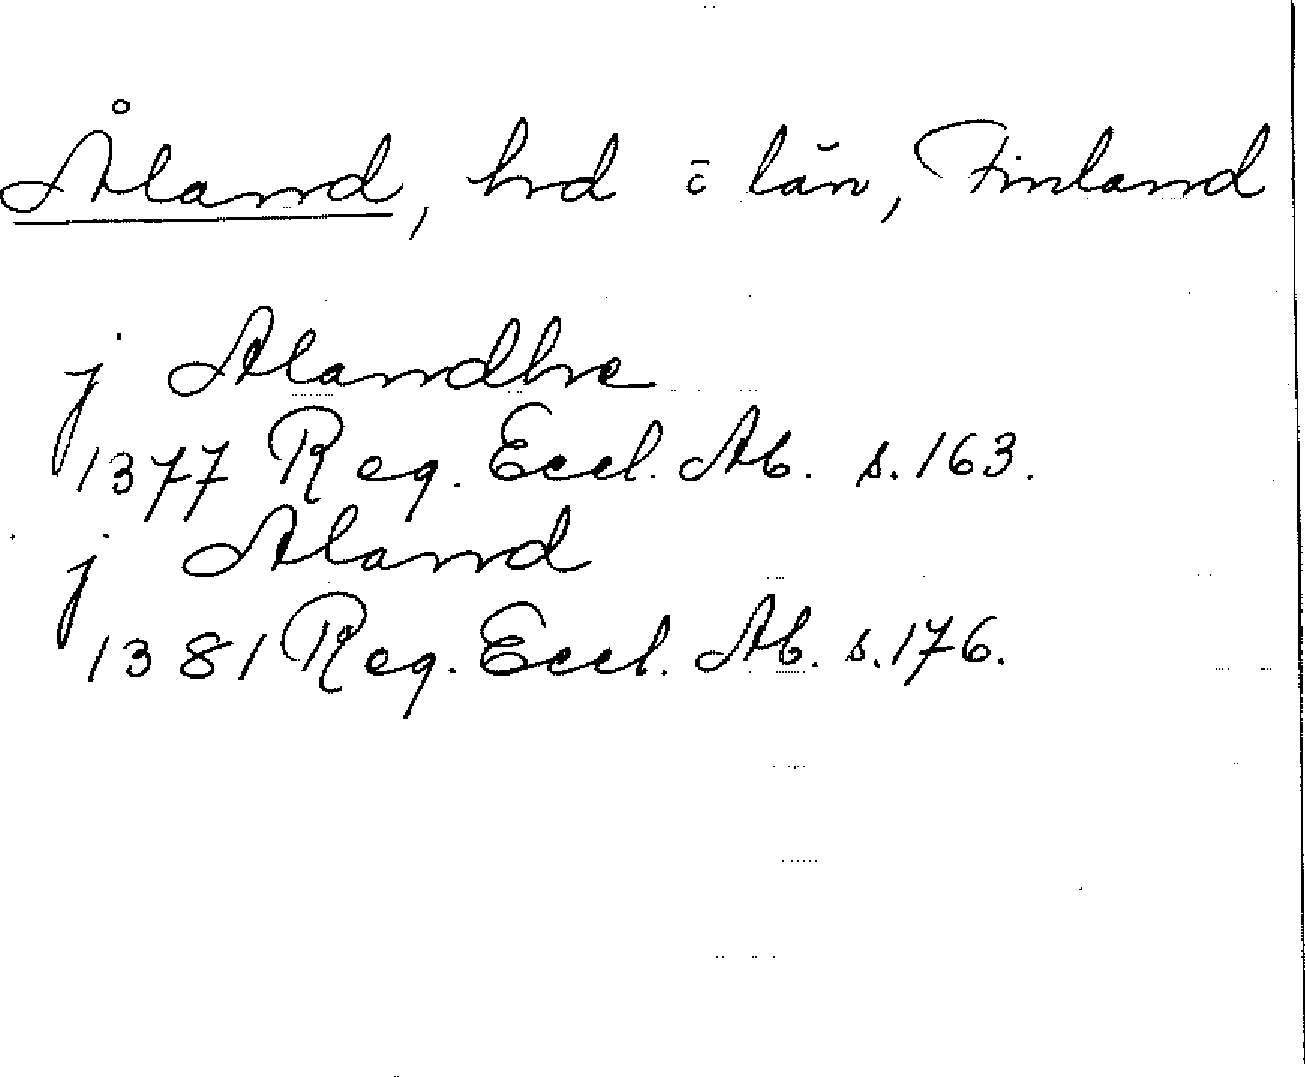 Åland, hd o län, Finland
j Alandhe
1377 Reg. Eccl. Ab. s. 163.
j Aland
1381 Reg. Eccl. Ab. s. 176.